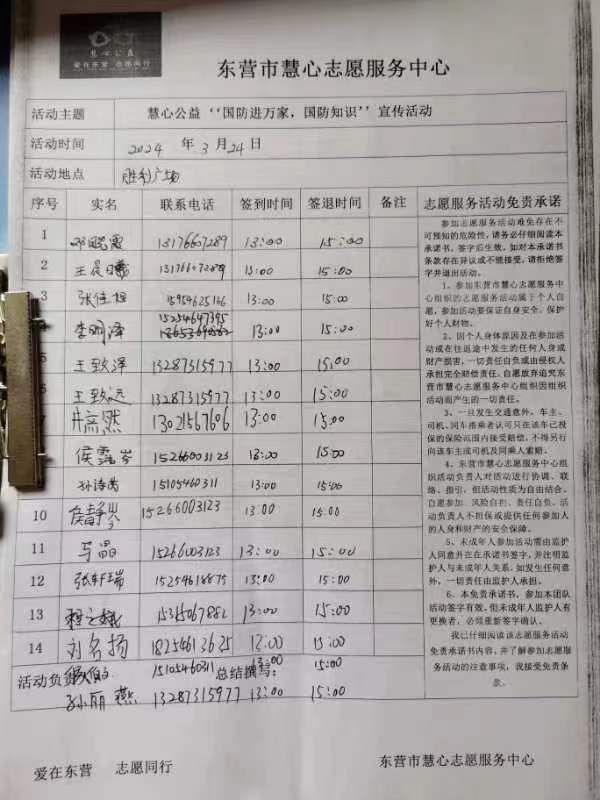 慧心公益
爱在东营 志愿同行
东营市慧心志愿服务中心
活动主题 慧心公益“国防进万家，国防知识”宣传活动
活动时间 2024 年 3 月 24 日
活动地点 胜利广场
序号 实名 联系电话 签到时间 签退时间 备注 志愿服务活动免责承诺
1 邓照霞 13176607289 13:00 15:00
2 王晨曦 13176607289 13:00 15:00
3 张佳旭 15954625166 13:00 15:00
李明泽 15254647395 13:00 15:00
王致泽 13287315977 13:00 15:00
王致远 13287315977 13:00 15:00
13021567606 13:00 15:00
侯鑫岑 15266003123 13:00 15:00
15105460311 13:00 15:00
10 侯静岑 15266003123 13:00 15:00
11 马晶 15266003123 13:00 15:00
12 张轩瑞 15254618875 13:00 15:00
13 15315067882 13:00 15:00
14 刘名扬 18254613625 13:00 15:00
活动负 15105460311 总结撰写： 13:00 15:00
孙丽燕 13287315977 13:00 15:00
参加志愿服务活动难免存在不
可预知的危险性，请务必仔细阅读本
承诺书，签字后生效，如对本承诺书
条款存在异议或不能接受，请拒绝签
字并退出活动。
1、参加东营市慧心志愿服务中
心组织的志愿服务活动属于个人自
愿，参加活动要保证自身安全，保护
好个人财物。
2、因个人身体原因及在参加活
动或在往返途中发生的任何人身或
财产损害，一切责任自负或由侵权人
承担完全赔偿责任，自愿放弃追究东
营市慧心志愿服务中心组织因组织
活动而产生的一切责任。
3、一旦发生交通意外，车主、
司机、同车搭乘者认可只在该车已投
保的保险范围内接受赔偿，不得另行
向该车主或司机及同乘人索赔。
4、东营市慧心志愿服务中心组
织活动负责人对活动进行协调、联
络、指引，但活动性质为自由结合，
自愿参加、风险自担、责任自负，活
动负责人不担保或提供任何参加人
的人身和财产的安全保障。
5、未成年人参加活动需由监护
人同意并在在承诺书签字，并注明监
护人与未成年人关系。如发生任何意
外，一切责任由监护人承担。
6、本免责承诺书，参加本团队
活动签字有效，但未成年人监护人有
更换者，必须重新签字确认。
我已仔细阅读该志愿服务活动
免责承诺书内容，并了解参加志愿服
务活动的注意事项，我接受免责条
款。
爱在东营 志愿同行 东营市慧心志愿服务中心